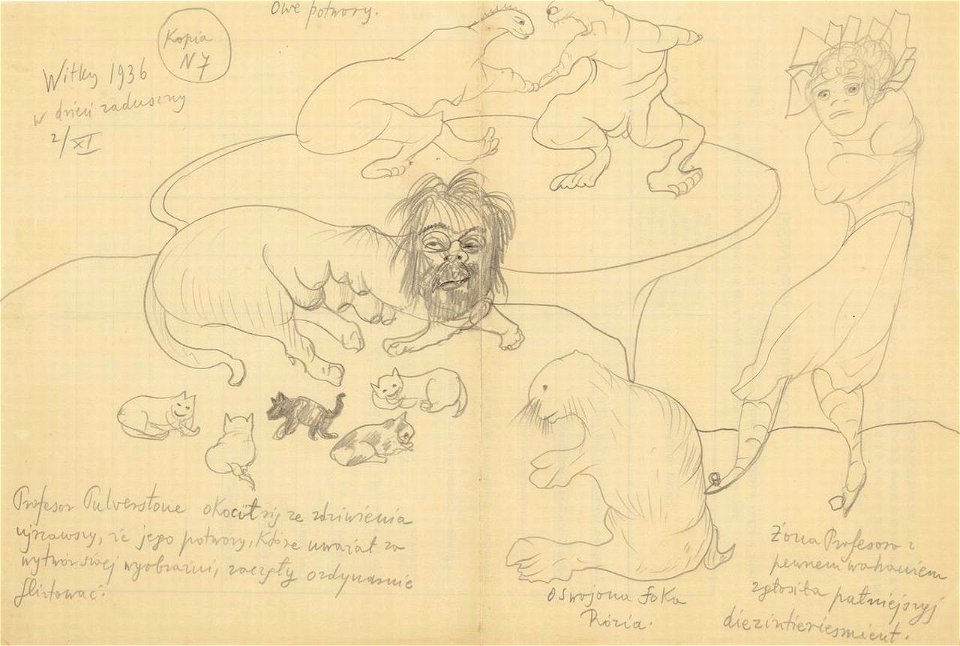 owe potwory.
Kopia
N 7
Witky 1936
w dzień zaduszny
2/XI
Profesor Pulverstone okocił się ze zdziwienia
ujrzawszy, że jego potwory, które uważał za
wytwór swej wyobraźni, zaczęły ordynarnie
flirtować.
Oswojona foka
Rózia.
Żona Profesora z
pewnem wahaniem
zgłosiła pałniejszyj
diezintieriesmient.